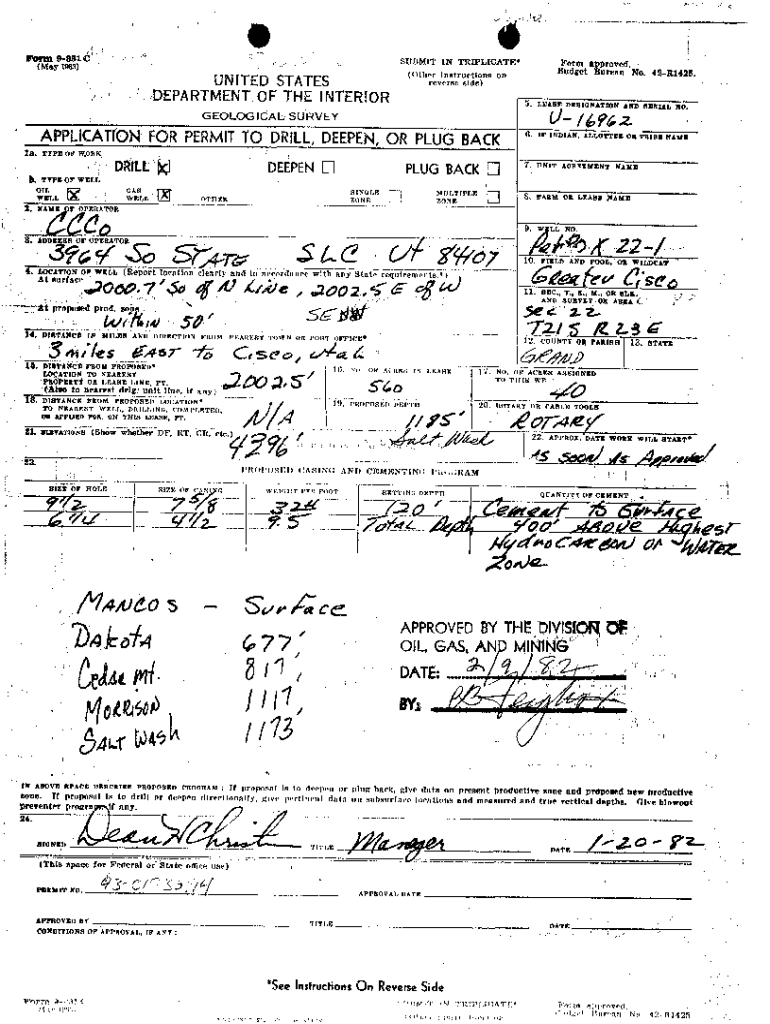 Form 9-331 C
(May 1963)
SUBMIT IN TRIPLICATE*
(Other instructions on
reverse side)
Form approved.
Budget Bureau No. 42-R1425.
UNITED STATES
DEPARTMENT OF THE INTERIOR
GEOLOGICAL SURVEY
5. LEASE DESIGNATION AND SERIAL NO.
U-16962
APPLICATION FOR PERMIT TO DRILL, DEEPEN, OR PLUG BACK
6. IF INDIAN, ALLOTTEE OR TRIBE NAME
1a. TYPE OF WORK
DRILL ☒ DEEPEN ☐ PLUG BACK ☐
7. UNIT AGREEMENT NAME
b. TYPE OF WELL
OIL WELL ☒ GAS WELL ☒ OTHER SINGLE ZONE ☐ MULTIPLE ZONE ☐
8. FARM OR LEASE NAME
2. NAME OF OPERATOR
CCCo
9. WELL NO.
22-1
3. ADDRESS OF OPERATOR
3964 So STATE SLC Ut 84107
10. FIELD AND POOL, OR WILDCAT
Greater Cisco
4. LOCATION OF WELL (Report location clearly and in accordance with any State requirements.*)
At surface
2000.7' So of N Line, 2002.5 E of W
At proposed prod. zone
Within 50' SE
11. SEC., T., R., M., OR BLK.
AND SURVEY OR AREA
Sec 22
T21S R23E
14. DISTANCE IN MILES AND DIRECTION FROM NEAREST TOWN OR POST OFFICE*
3 miles EAST to Cisco, Utah
12. COUNTY OR PARISH 13. STATE
GRAND
15. DISTANCE FROM PROPOSED*
LOCATION TO NEAREST
PROPERTY OR LEASE LINE, FT.
(Also to nearest drlg. unit line, if any)
2002.5'
16. NO. OF ACRES IN LEASE
560
17. NO. OF ACRES ASSIGNED
TO THIS WELL
40
18. DISTANCE FROM PROPOSED LOCATION*
TO NEAREST WELL, DRILLING, COMPLETED,
OR APPLIED FOR, ON THIS LEASE, FT.
N/A
19. PROPOSED DEPTH
1185'
Salt Wash
20. ROTARY OR CABLE TOOLS
ROTARY
21. ELEVATIONS (Show whether DF, RT, GR, etc.)
4396'
22. APPROX. DATE WORK WILL START*
As soon As Approved
23.
PROPOSED CASING AND CEMENTING PROGRAM
SIZE OF HOLE SIZE OF CASING WEIGHT PER FOOT SETTING DEPTH QUANTITY OF CEMENT
9 1/2 7 5/8 32# 120' Cement To Surface
6 1/4 4 1/2 9.5 Total Depth 400' ABOVE Highest
HydroCARBON or WATER
Zone
MANCOS - Surface
Dakota 677'
Cedar Mt. 817'
Morrison 1117'
SALT WASh 1173'
APPROVED BY THE DIVISION OF
OIL, GAS, AND MINING
DATE: 2/9/82
BY:
IN ABOVE SPACE DESCRIBE PROPOSED PROGRAM: If proposal is to deepen or plug back, give data on present productive zone and proposed new productive
zone. If proposal is to drill or deepen directionally, give pertinent data on subsurface locations and measured and true vertical depths. Give blowout
preventer program, if any.
24.
SIGNED Dean H Christ TITLE Manager DATE 1-20-82
(This space for Federal or State office use)
PERMIT NO. APPROVAL DATE
APPROVED BY TITLE DATE
CONDITIONS OF APPROVAL, IF ANY:
*See Instructions On Reverse Side